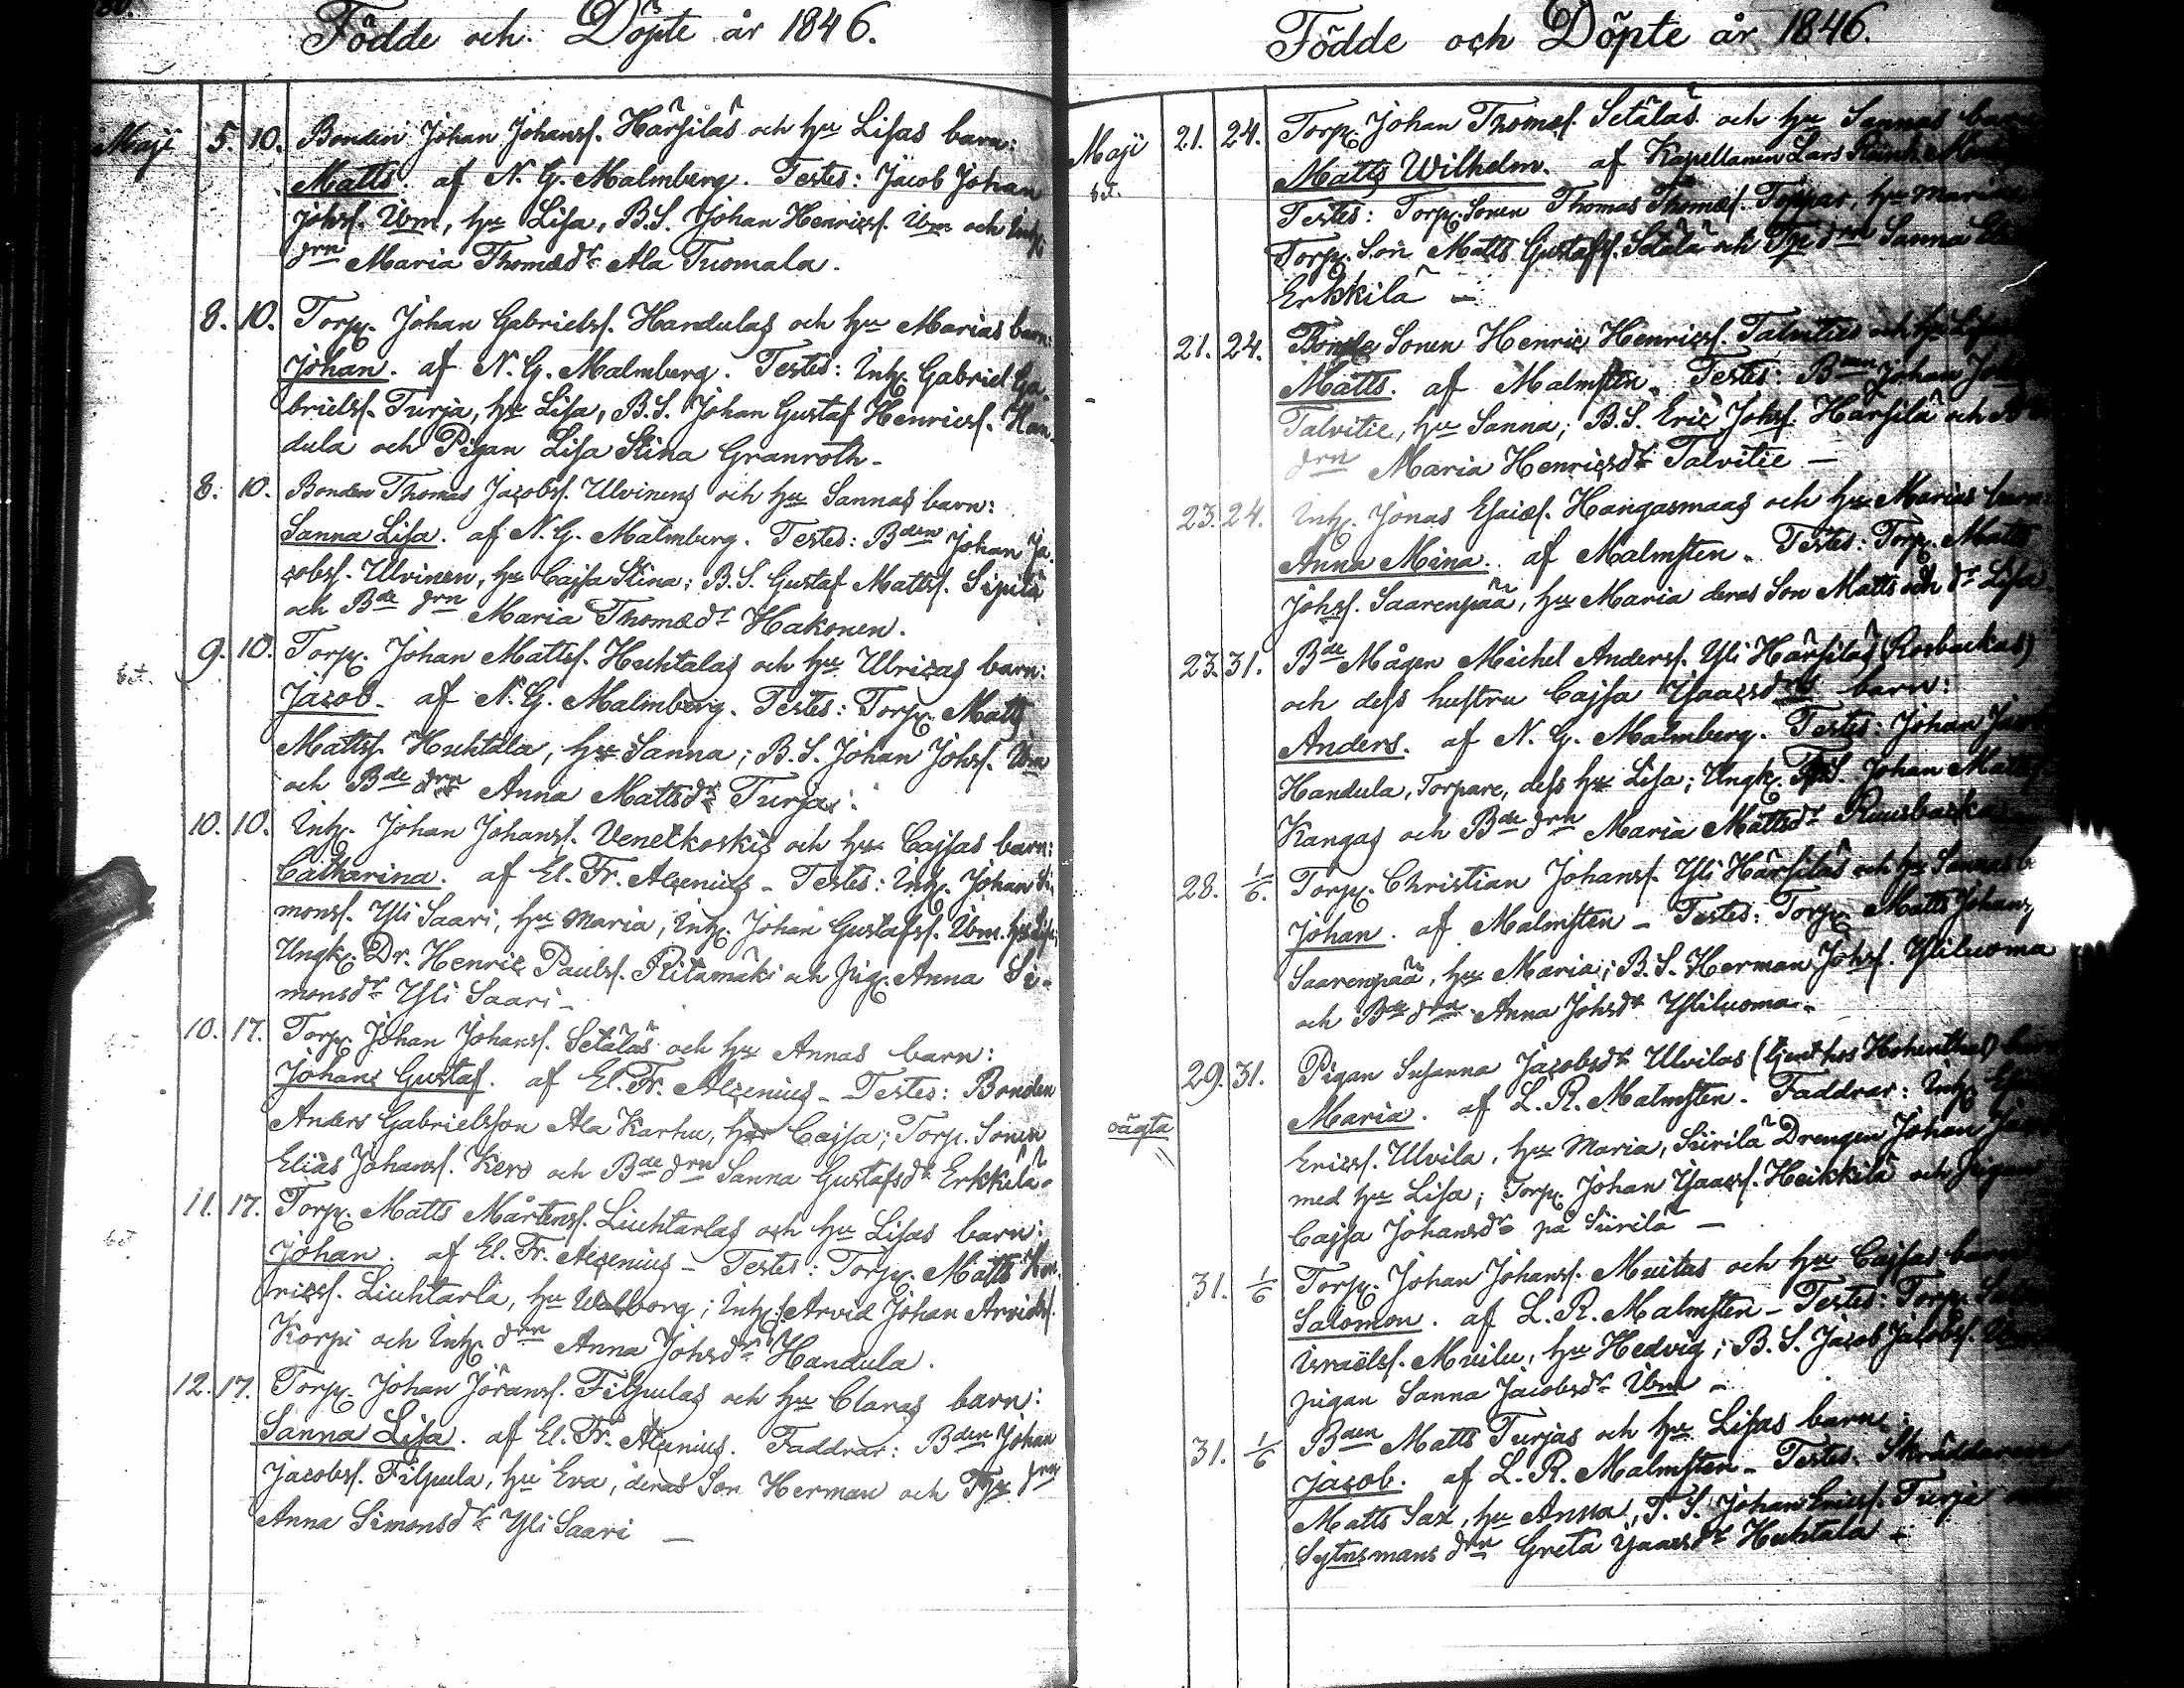 Födde och Döpte år 1846.
Maji 5. 10. Bonden Johan Johanss. Härsiläs och hu Lisas barn:
Matts. af N. G. Malmberg. Testes: Jacob Johan
Johss. Ibm, hu Lisa, B.S. Johan Henricss. Ibm och Inh.
drn Maria Thomædr Ala Tuomala.
8. 10. Torp. Johan Gabrielss. Handulas och hu Marias barn:
Johan. af N. G. Malmberg. Testes: Inh. Gabriel Ga-
brielss. Turja, hu Lisa, B.S. Johan Gustaf Henricss. Han-
dula och Pigan Lisa Stina Granroth.
8. 10. Bonden Thomas Jacobss. Ulvinens och hu Sannas barn:
Sanna Lisa. af N. G. Malmberg. Testes: Bden Johan Ja-
cobss. Ulvinen, hu Cajsa Stina; B.S. Gustaf Mattss. Sipilä
och Bde drn Maria Thomædr Hakonen.
bet. 9. 10. Torp. Johan Mattss. Huhtalas och hu Ulricas barn:
Jacob. af N. G. Malmberg. Testes: Torp. Matts
Mattss. Huhtala, hu Sanna; B.S. Johan Johss. Ibm
och Bde drn Anna Mattsdr Turja.
10. 10. Inh. Johan Johanss. Venetkoskis och hu Cajsas barn:
Catharina. af El. Fr. Alcenius - Testes: Inh. Johan Si-
monss. Yli Saari, hu Maria, Inh. Johan Gustafss. Ibm. hu Lisa;
Ungk. Dr. Henric Paulss. Ritamäki och Pig. Anna Si-
monsdr Yli Saari -
10. 17. Torp. Johan Johanss. Setäläs och hu Annas barn:
Johan Gustaf. af El. Fr. Alcenius - Testes: Bonden
Anders Gabrielsson Ala Karhu, hu Cajsa; Torp. Sonen
Elias Johanss. Kero och Bde drn Sanna Gustafsdr Erkkilä.
bet 11. 17. Torp. Matts Mårtenss. Liuhtarlas och hu Lisas barn:
Johan. af El. Fr. Alcenius - Testes: Torp. Matts Hen-
ricss. Liuhtarla, hu Walborg; Inh. Arvid Johan Arvidss.
Korpi och Inh. drn Anna Johsdr Handula.
12. 17. Torp. Johan Jöranss. Filpulas och hu Claras barn:
Sanna Lisa. af El. Fr. Alcenius. Faddrar: Bden Johan
Jacobss. Filpula, hu Eva, deras Son Herman och Tp. drn
Anna Simonsdr Yli Saari -
Födde och Döpte år 1846.
Maji 21. 24. Torp. Johan Thomæs. Setäläs och hu Sannas
bet. Matts Wilhelm. af Kapellanen Lars Reinh.
Testes: Torp. Sonen Thomas Thomæs. Toppar, hu Maria
Torp. Son Matts Gustafss. Setälä och Tp drn Sanna
Erkkilä -
21. 24. Bonde Sonen Henric Henricss. Talvities och hu Lisas
Matts. af Malmsten. Testes: Bden Johan
Talvitie, hu Sanna; B.S. Eric Johss. Härsilä och
drn Maria Henricsdr Talvitie -
23. 24. Inh. Jonas Esaiæs. Hangasmaas och hu Marias barn:
Anna Mina. af Malmsten. Testes: Torp. Matts
Johss. Saarenpää, hu Maria deras Son Matts och dr Lisa
23. 31. Bde Mågen Michel Anderss. Yli Härsiläs (Rosbackas)
och dess hustru Cajsa Isaacsdrs barn:
Anders. af N. G. Malmberg. Testes: Johan
Handula, Torpare, dess hu Lisa; Ungk. Johan Matts
Kangas och Bde drn Maria Mattsdr
28. 1/6. Torp. Christian Johanss. Yli Härsiläs och hu Sannas b
Johan. af Malmsten - Testes: Torp. Matts Johans
Saarenpää, hu Maria; B.S. Herman Johss. Yliluoma
och Bde drn Anna Johsdr Yliluoma.
29. 31. Pigan Susanna Jacobsdr Ulvilas (tjent hos Hohenthal)
oägta Maria. af L. R. Malmsten. Faddrar: Inh.
Ericss. Ulvila, hu Maria, Siirilä Drengen Johan
med hu Lisa; Torp. Johan Isaacss. Heikkilä och Pigan
Cajsa Johansdr på Siirilä -
31. 1/6 Torp. Johan Johanss. Muilus och hu Cajsas barn
Salomon. af L. R. Malmsten - Testes: Torp.
Israëlss. Muilu, hu Hedvig; B.S. Jacob Jacobss.
pigan Sanna Jacobsdr Ibm -
31. 1/6 Bden Matts Turjas och hu Lisas barn:
Jacob. af L. R. Malmsten - Testes: Skräddaren
Matts Sax, hu Anna, T.S. Johan Ericss. Turja och
Sytnsmans drn Greta Isaacsdr Huhtala -